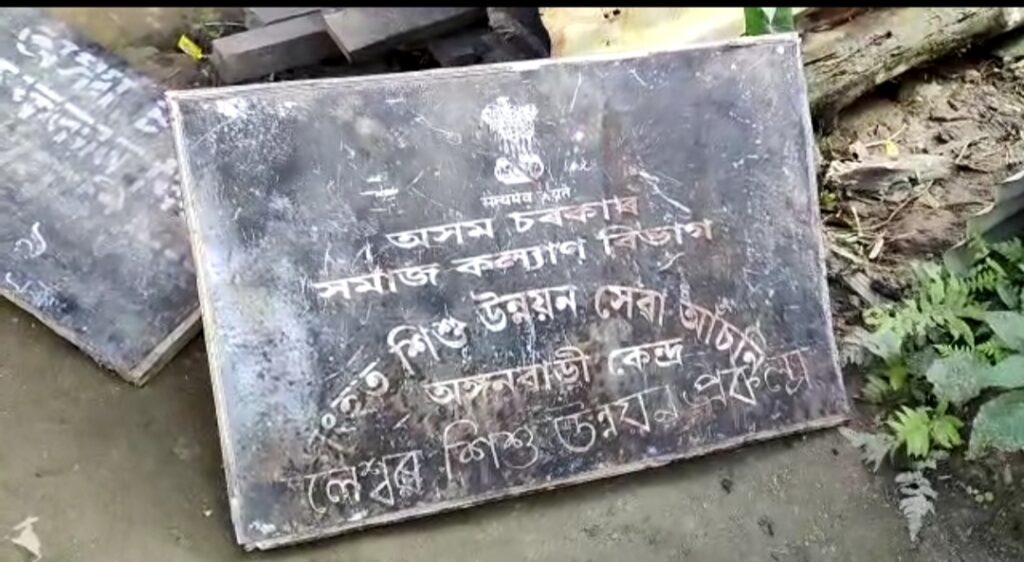 सत्यमेव जयते
অসম চৰকাৰ
সমাজ কল্যাণ বিভাগ
সংহত শিশু উন্নয়ন সেৱা আঁচনি
অঙ্গনবাড়ী কেন্দ্ৰ
লেশ্বৰ শিশু উন্নয়ন প্ৰকল্প